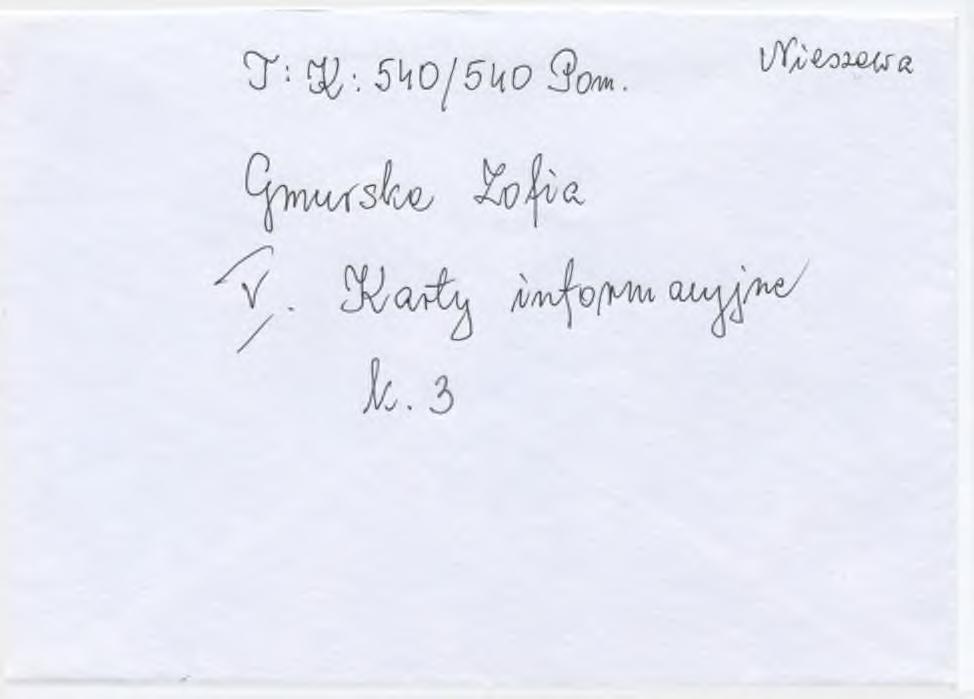 T: K: 540/540 Pom.
Nieszawa
Gmurska Zofia
V. Karty informacyjne
k. 3